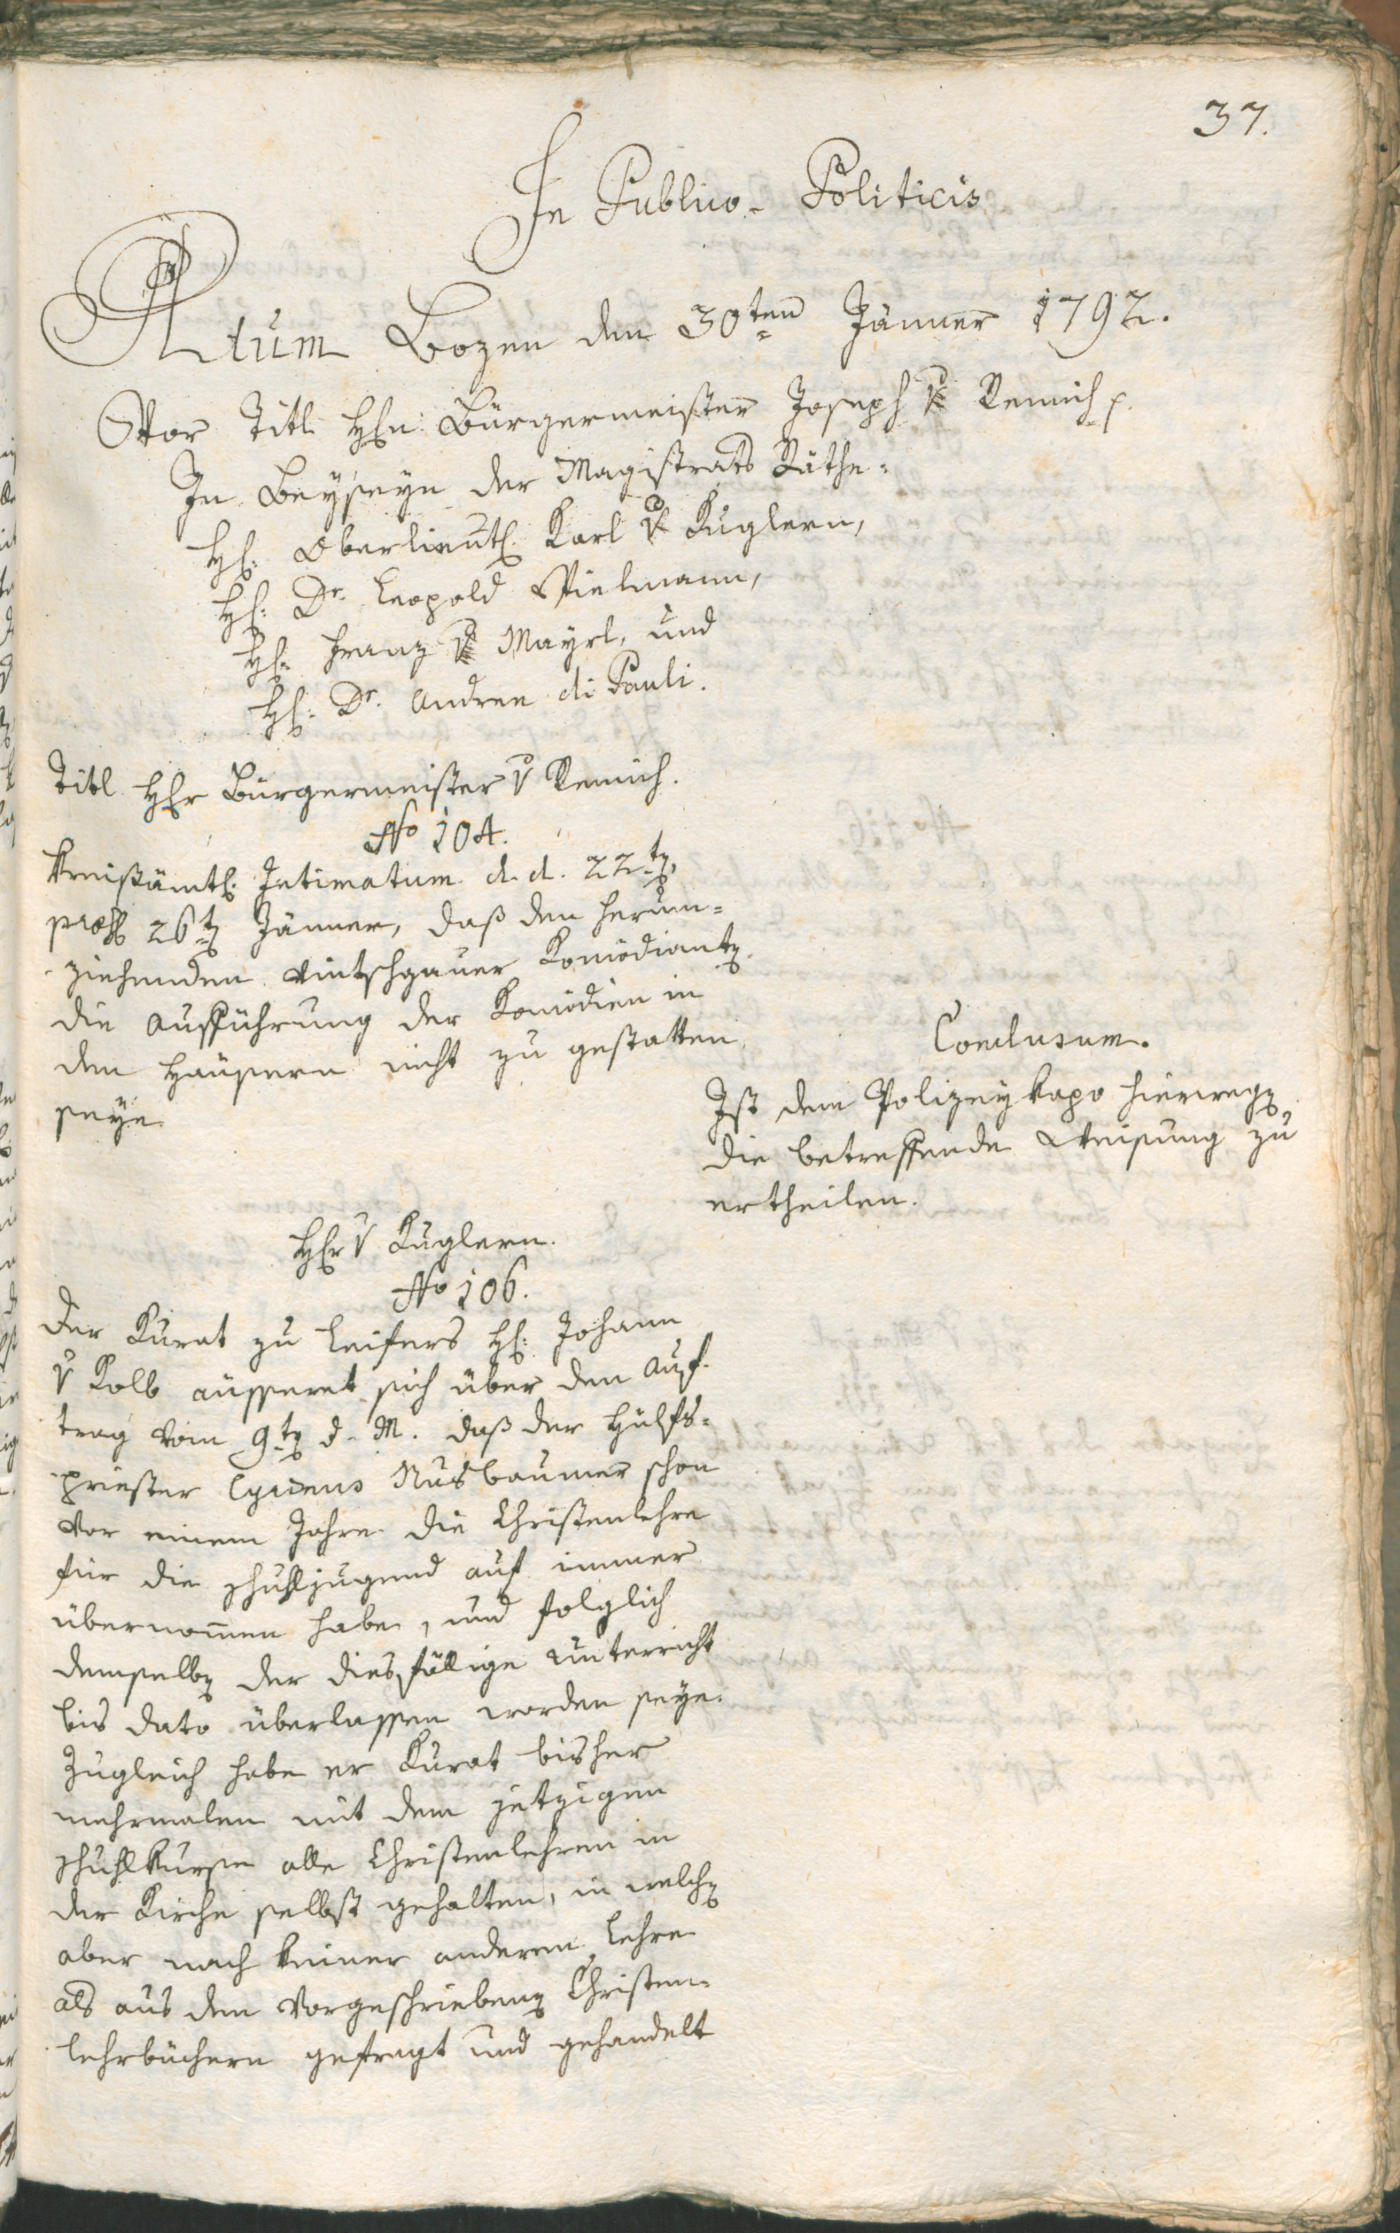 37.
In Publico-Politicis
Actum Bozen den 30ten Jänner 1792.
Vor Titl Hln: Bürgermeister Joseph v Remich p.
In Beyseyn der Magistrats Räthe:
Hl: Oberlieutl. Karl v Kuglern,
Hl: Dr. Leopold Vielmann,
Hl: Franz v Mayrl, und
Hl: Dr. Andree di Pauli.
Titl Hlr Bürgermeister v Remich.
No 104.
Kreißämtl. Intimatum d. d. 22tn
præs 26tn Jänner, daß den herum-
ziehenden vintschgauer Komödiantn
die Aufführung der Komödien in
den Häusern nicht zu gestatten
seye.
Conclusum.
Ist dem Polizeykapo hierwegn
die betreffende Weisung zu
ertheilen.
Hlr v Kuglern.
No 106.
Der Kurat zu Leifers Hl: Johann
v Kolb äusseret sich über den Auf-
trag vom 9tn d. M. daß der Hülfs-
priester Nusbaumer schon
vor einem Jahre die Christenlehre
für die Schuhljugend auf immer
übernommen habe, und folglich
demselbn der diesfällige Unterricht
bis dato überlassen worden seye.
Zugleich habe er Kurat bisher
mehrmalen mit dem jetzigen
Schuhlkurse alle Christenlehren in
der Kirche selbst gehalten, in welchn
aber nach keiner anderen Lehre
als aus den vorgeschriebenn Christen-
lehrbüchern gefragt und gehandelt